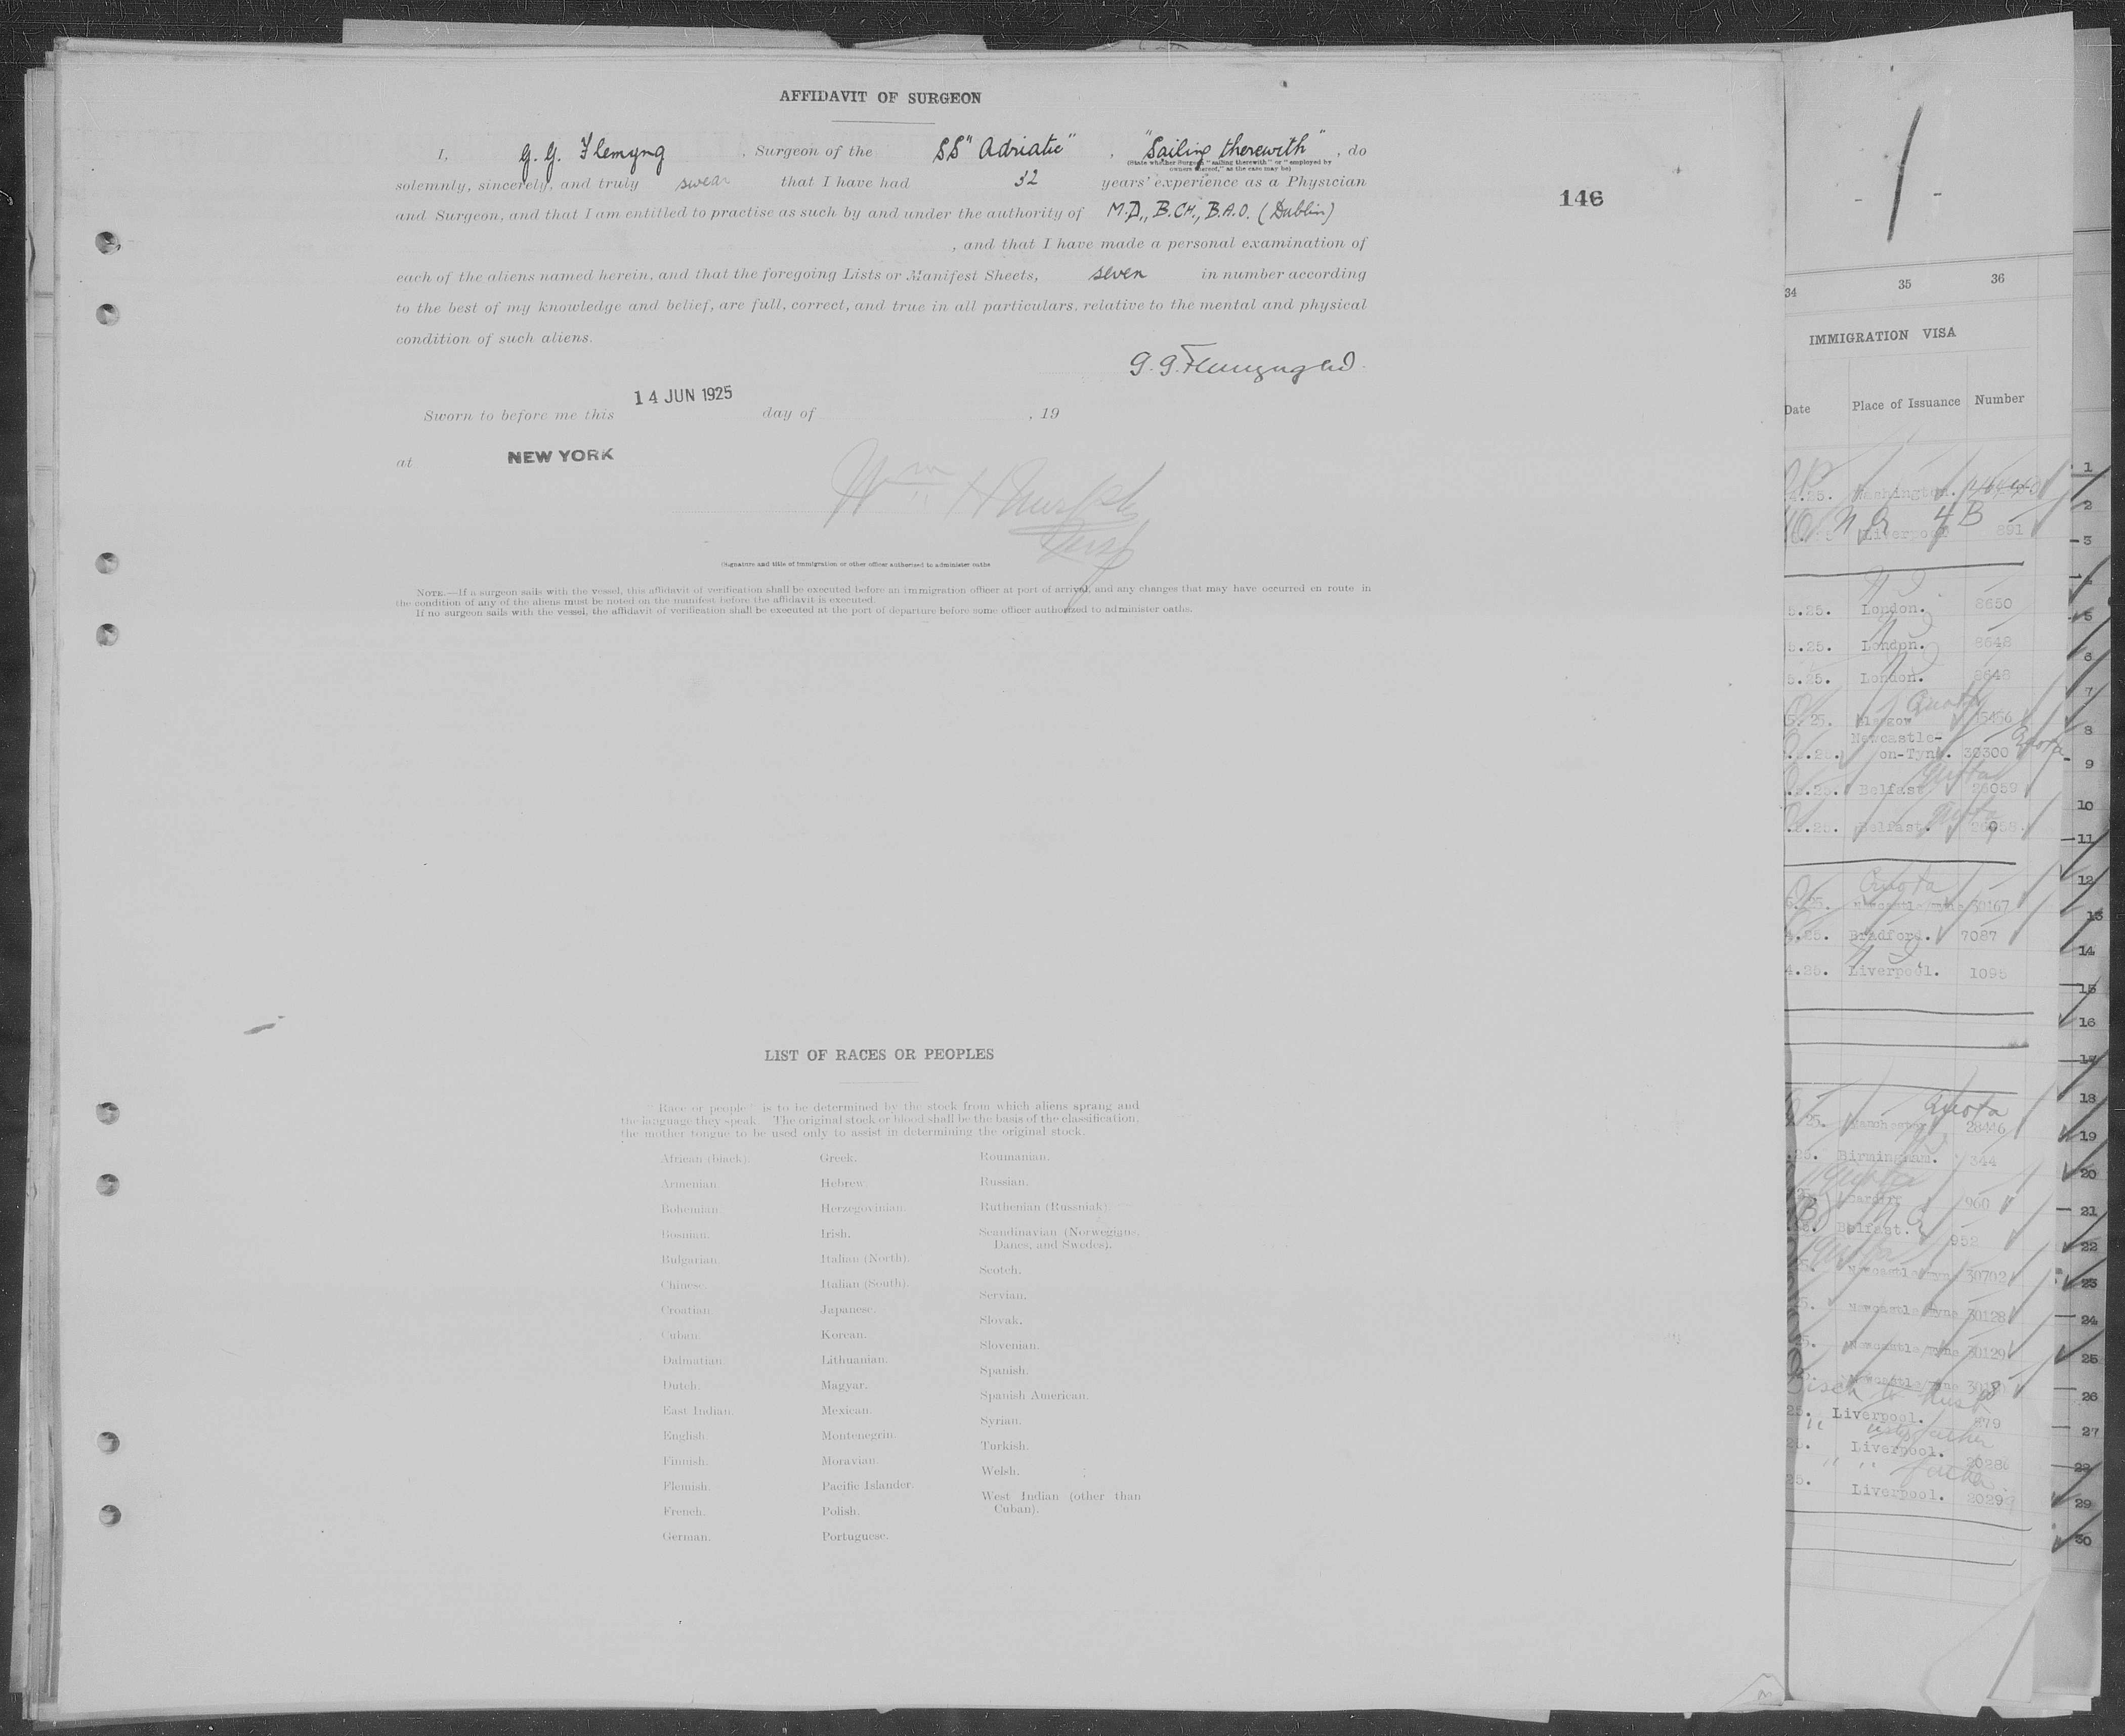 AFFIDAVIT OF SURGEON
I, G. G. Flemyng, Surgeon of the SS "Adriatic", "Sailing therewith", do
(State whether Surgeon "sailing therewith" or "employed by
owners thereof," as the case may be)
solemnly, sincerely, and truly swear that I have had 32 years' experience as a Physician
and Surgeon, and that I am entitled to practise as such by and under the authority of M.D., B.CH., B.A.O. (Dublin)
146
, and that I have made a personal examination of
each of the aliens named herein, and that the foregoing Lists or Manifest Sheets, seven in number according
to the best of my knowledge and belief, are full, correct, and true in all particulars, relative to the mental and physical
condition of such aliens.
G. G. Flemyng
Sworn to before me this 14 JUN 1925 day of , 19
at NEW YORK
(Signature and title of immigration or other officer authorized to administer oaths
NOTE.—If a surgeon sails with the vessel, this affidavit of verification shall be executed before an immigration officer at port of arrival, and any changes that may have occurred en route in
the condition of any of the aliens must be noted on the manifest before the affidavit is executed.
If no surgeon sails with the vessel, the affidavit of verification shall be executed at the port of departure before some officer authorized to administer oaths.
LIST OF RACES OR PEOPLES
"Race or people" is to be determined by the stock from which aliens sprang and
the language they speak. The original stock or blood shall be the basis of the classification,
the mother tongue to be used only to assist in determining the original stock.
African (black).
Armenian.
Bohemian.
Bosnian.
Bulgarian.
Chinese.
Croatian.
Cuban.
Dalmatian.
Dutch.
East Indian.
English.
Finnish.
Flemish.
French.
German.
Greek.
Hebrew.
Herzegovinian.
Irish.
Italian (North).
Italian (South).
Japanese.
Korean.
Lithuanian.
Magyar.
Mexican.
Montenegrin.
Moravian.
Pacific Islander.
Polish.
Portuguese.
Roumanian.
Russian.
Ruthenian (Russniak)
Scandinavian (Norwegians,
Danes, and Swedes).
Scotch.
Servian.
Slovak.
Slovenian.
Spanish.
Spanish American.
Syrian.
Turkish.
Welsh.
West Indian (other than
Cuban).
34 35 36
IMMIGRATION VISA
Date Place of Issuance Number
4.25. Washington.
Liverpool 891
5.25. London. 8650
5.25. London. 8648
5.25. London. 8648
Quota
5.25. Glasgow 15456
Newcastle-
on-Tyne. 30300 Quota
Quota
.25. Belfast 26059
Quota
.25. Belfast.
Quota
25. Newcastle/Tyne 30167
.25. Bradford. 7087
4.25. Liverpool. 1095
Quota
25. Manchester 28446
25. Birmingham. 344
Quota
Cardiff 960
Belfast. 952
Quota
Newcastle/Tyne 30702
Newcastle/Tyne 30128
Newcastle/Tyne 30129
Newcastle/Tyne
25. Liverpool. 879
father
Liverpool. 2028
father
25. Liverpool. 2029
1
2
3
4
5
6
7
8
9
10
11
12
13
14
15
16
17
18
19
20
21
22
23
24
25
26
27
28
29
30